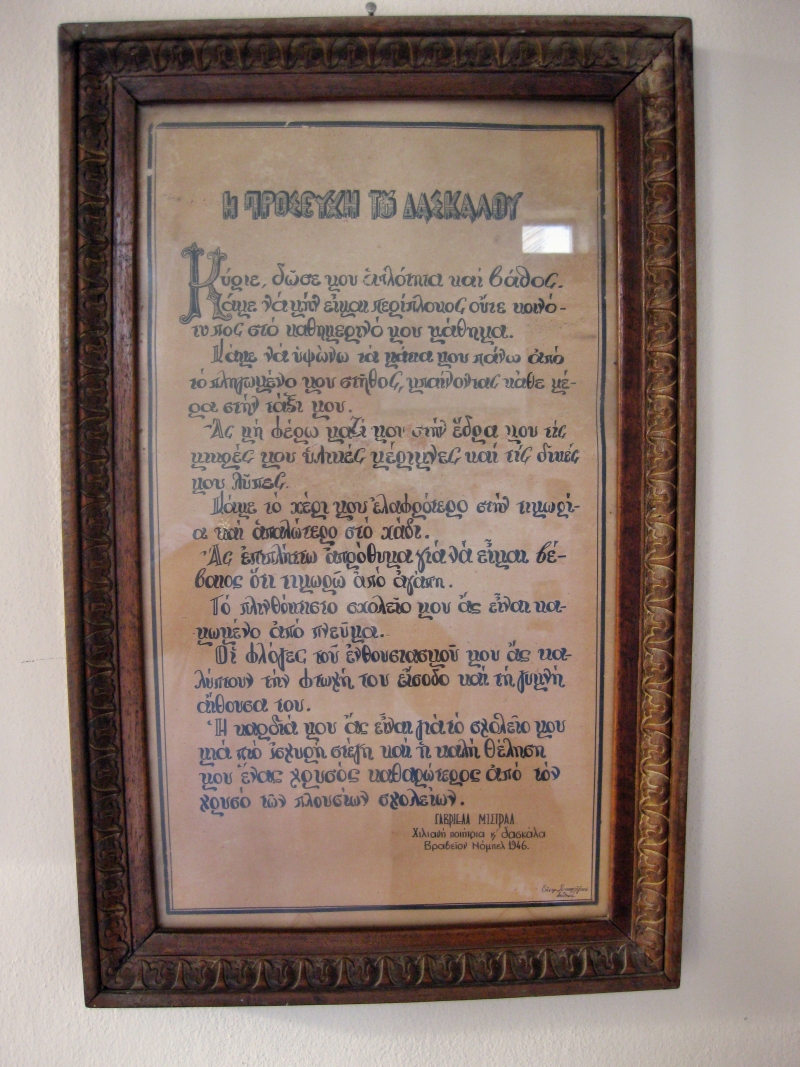 Η ΠΡΟΣΕΥΧΗ ΤΟΥ ΔΑΣΚΑΛΟΥ
Κύριε, δῶσε μου ἁπλότητα καί βάθος.
Κάμε νά μήν εἶμαι περίπλοκος οὔτε κοινό-
τυπος στό καθημερινό μου μάθημα.
Κάμε νά ὑψώνω τά μάτια μου πάνω ἀπό
τό πληγωμένο μου στῆθος, μπαίνοντας κάθε μέ-
ρα στήν τάξι μου.
Ἄς μή φέρω μαζί μου στήν ἕδρα μου τίς
μικρές μου ὑλικές μέριμνες καί τίς δικές
μου λύπες.
Κάμε τό χέρι μου ἐλαφρότερο στήν τιμωρί-
α καί ἁπαλώτερο στό χάδι.
Ἄς ἐπιπλήττω ἀπρόθυμα γιά νά εἶμαι βέ-
βαιος ὅτι τιμωρῶ ἀπό ἀγάπη.
Τό πλινθόκτιστο σχολεῖο μου ἄς εἶναι κα-
μωμένο ἀπό πνεῦμα.
Οἱ φλόγες τοῦ ἐνθουσιασμοῦ μου ἄς κα-
λύπτουν τήν φτωχή του εἴσοδο καί τή γυμνή
αἴθουσα του.
Ἡ καρδιά μου ἄς εἶναι γιά τό σχολεῖο μου
μιά πιό ἰσχυρή στέγη καί ἡ καλή θέληση
μου ἕνας χρυσός καθαρώτερος ἀπό τόν
χρυσό τῶν πλουσίων σχολείων.
ΓΑΒΡΙΕΛΑ ΜΙΣΤΡΑΛ
Χιλιανή ποιήτρια κ' δασκάλα
Βραβεῖον Νόμπελ 1946.